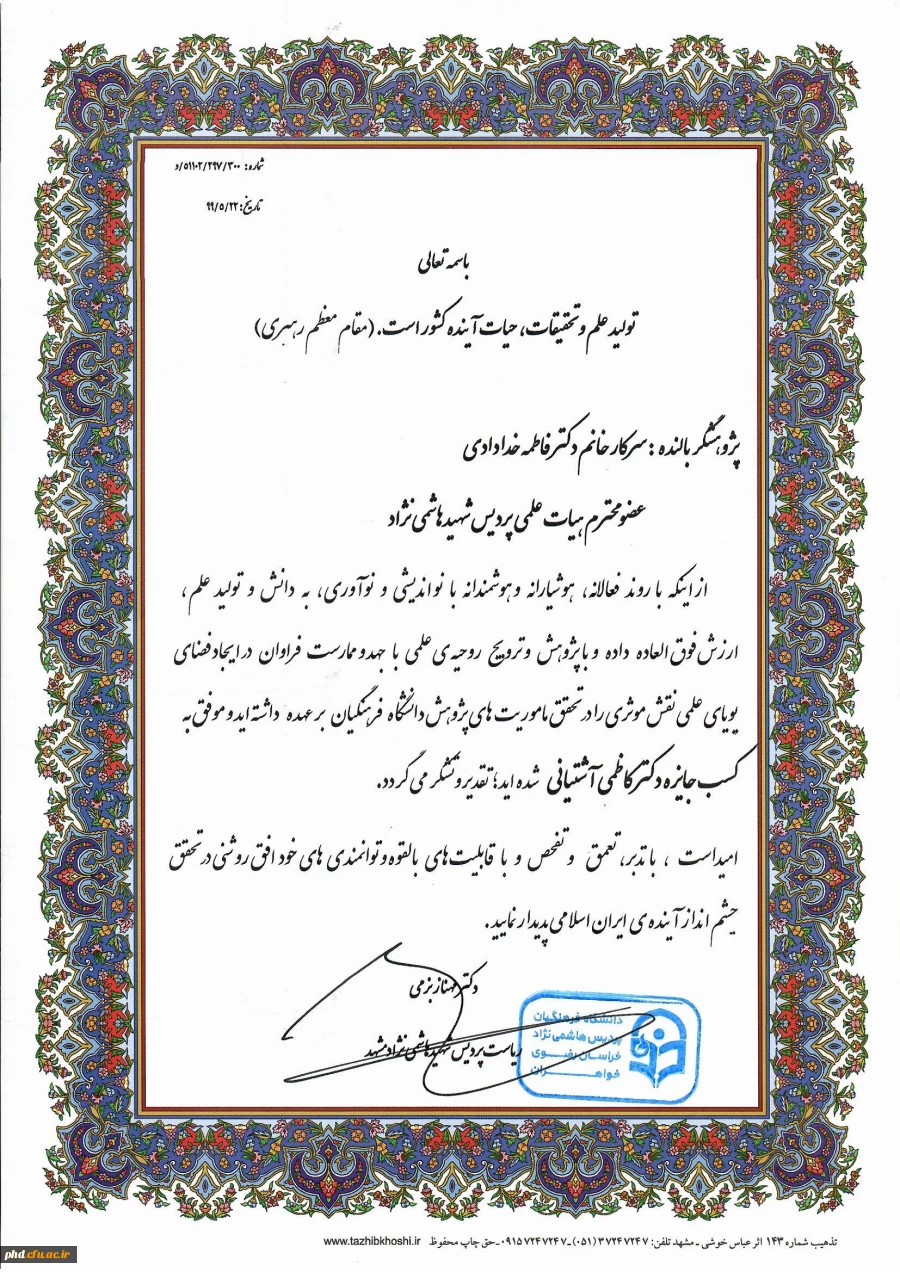 شماره: ۵۱۱۰۲/۲۹۷/۳۰۰/د
تاریخ: ۹۹/۵/۲۲
باسمه تعالی
تولید علم و تحقیقات، حیات آینده کشور است. (مقام معظم رهبری)
پژوهشگر بالنده : سرکار خانم دکتر فاطمه خدادادی
عضو محترم هیات علمی پردیس شهید هاشمی نژاد
از اینکه با روند فعالانه، هوشیارانه و هوشمندانه با نواندیشی و نوآوری، به دانش و تولید علم ،
ارزش فوق العاده داده و با پژوهش و ترویج روحیه ی علمی با جهد و ممارست فراوان در ایجاد فضای
پویای علمی نقش موثری را در تحقق ماموریت های پژوهش دانشگاه فرهنگیان بر عهده داشته اید و موفق به
کسب جایزه دکتر کاظمی آشتیانی شده اید؛ تقدیر و تشکر می گردد.
امید است ، با تدبر، تعمق و تفحص و با قابلیت های بالقوه و توانمندی های خود افق روشنی در تحقق
چشم انداز آینده ی ایران اسلامی پدیدار نمایید.
دکتر مهناز بزمی
ریاست پردیس شهید هاشمی نژاد مشهد
دانشگاه فرهنگیان
پردیس هاشمی نژاد
خراسان رضوی
خواهران
تذهیب شماره ۱۴۳ اثر عباس خوشی ـ مشهد تلفن: ۳۷۲۴۷۲۴۷ (۰۵۱) ـ ۰۹۱۵۷۲۴۷۲۴۷ ـ حق چاپ محفوظ www.tazhibkhoshi.ir
phd.cfu.ac.ir